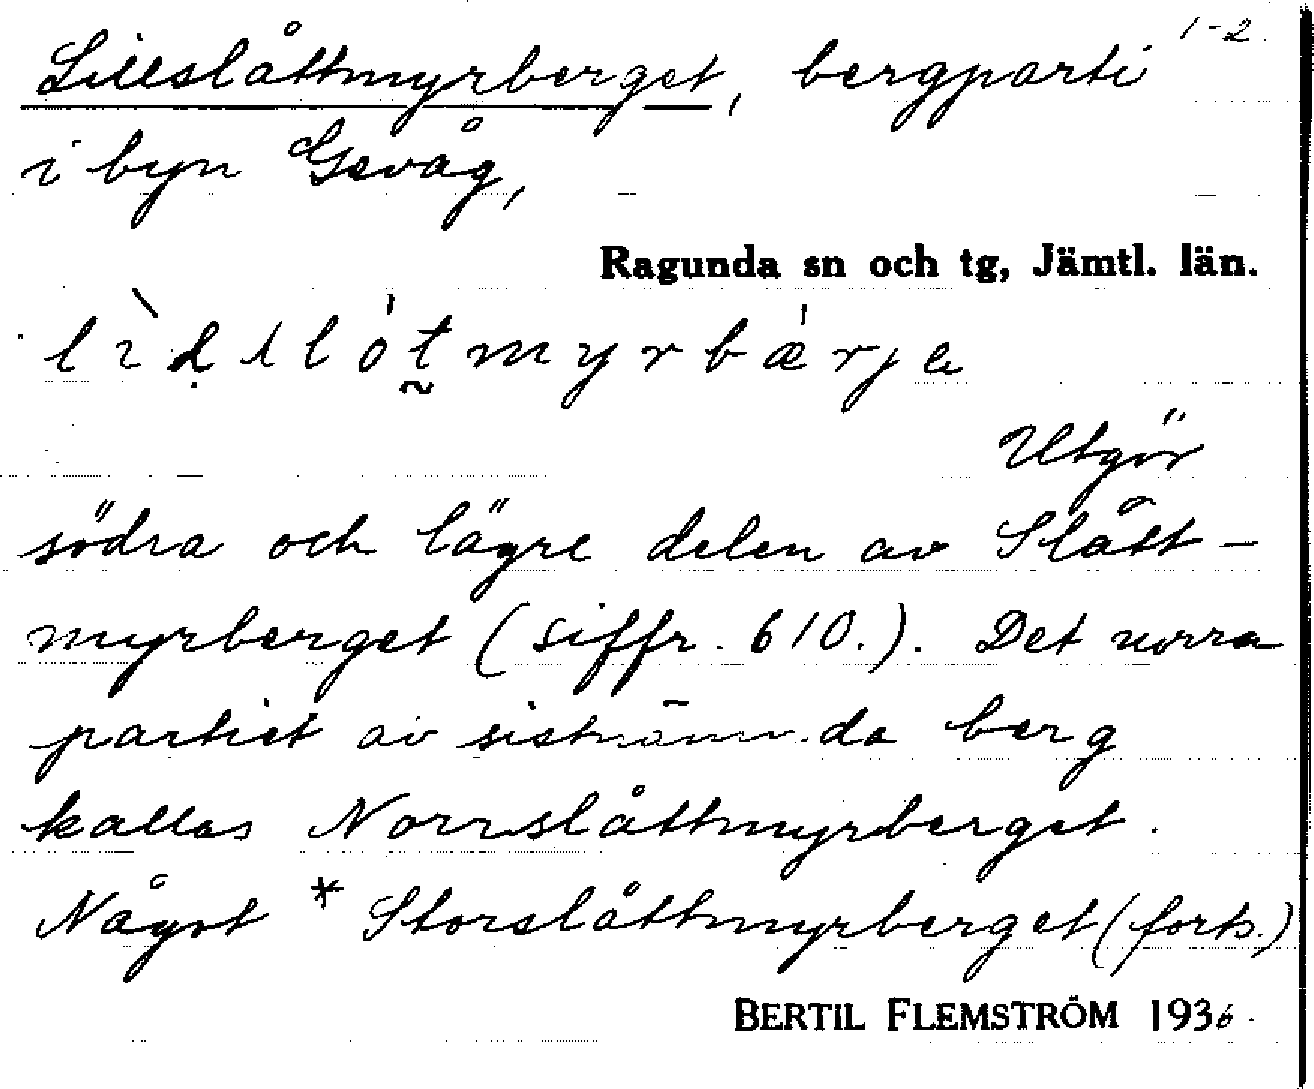 1-2.
Lillslåttmyrberget, bergparti
i byn Gevåg,
Ragunda sn och tg, Jämtl. län.
Utgör
södra och lägre delen av Slått-
myrberget (siffr. 610.). Det norra
partiet av sistnämnda berg
kallas Norrslåttmyrberget.
Något * Storslåttmyrberget (forts.)
BERTIL FLEMSTRÖM 1936.